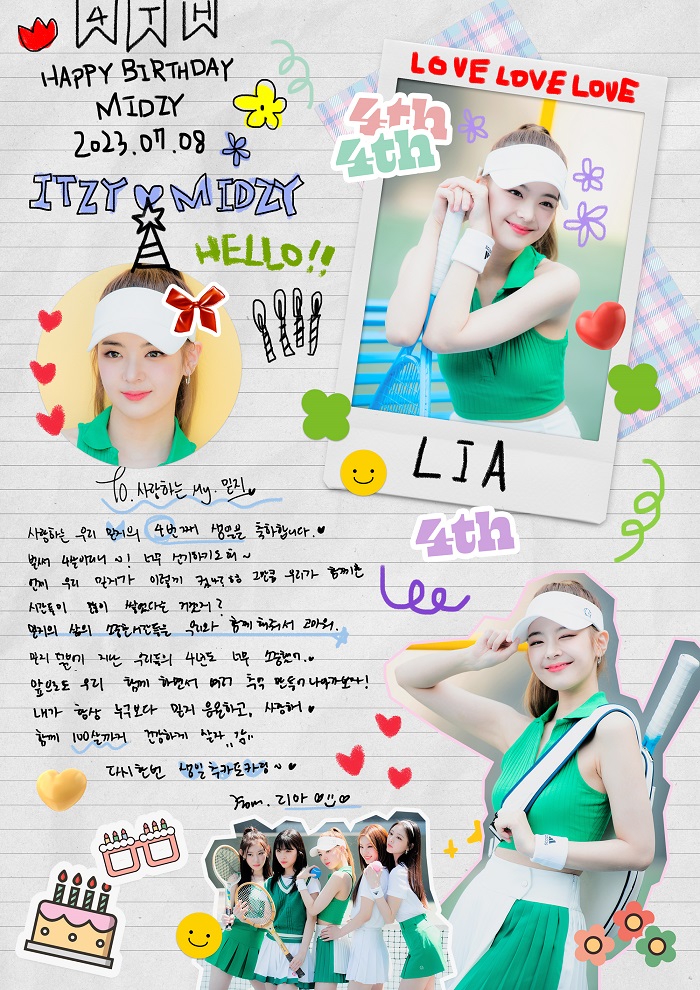 4TH
HAPPY BIRTHDAY
MIDZY
2023.07.08
ITZY MIDZY
HELLO!!
LOVE LOVE LOVE
4th
4th
LIA
4th
To. 사랑하는 My. 믿지
사랑하는 우리 믿지의 4번째 생일을 축하합니다.
벌써 4살이라니~! 너무 신기하기도 해~
언제 우리 믿지가 이렇게 컸나ㅎㅎ 그만큼 우리가 함께한
시간들이 많이 쌓였다는 거겠지?
믿지의 삶의 소중한 시간들을 우리와 함께 해줘서 고마워.
믿지 덕분에 지난 우리들의 4년도 너무 소중했어.
앞으로도 우리 함께 하면서 여러 추억 만들어 나가보자!
내가 항상 누구보다 믿지 응원하고, 사랑해
함께 100살까지 건강하게 살자
다시한번 생일 추카추카링~
From. 리아